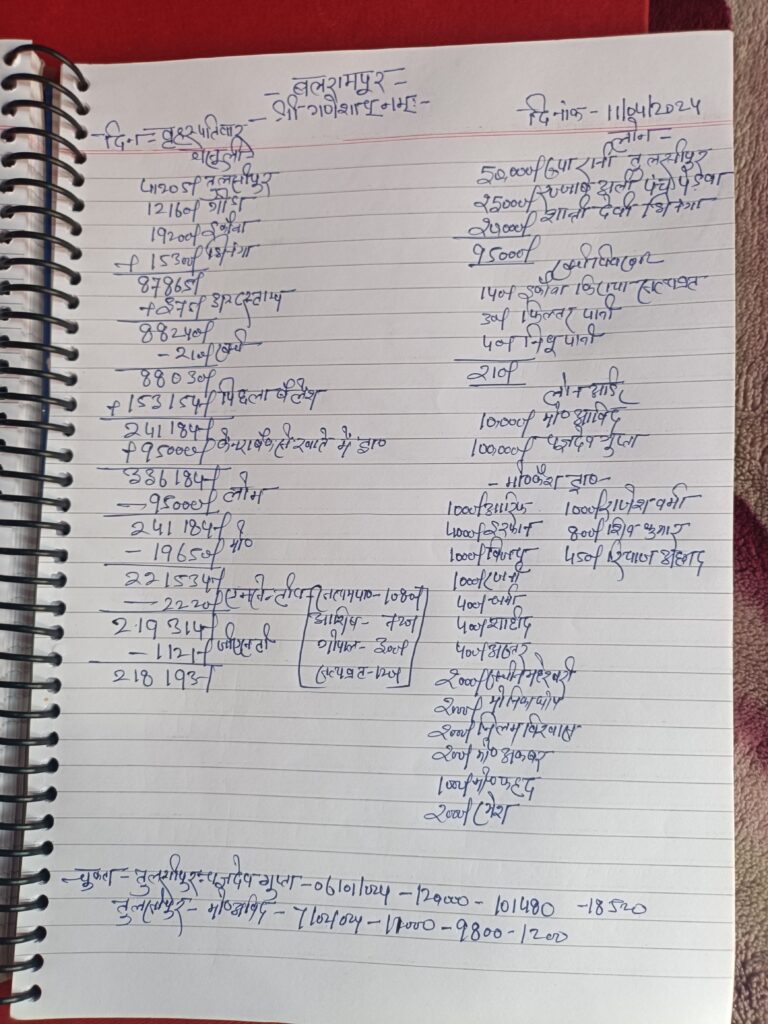 - बलरामपुर -
- श्री गणेशाय नमः -
दिन = वृहस्पतिवार
दिनांक - 11/04/2024
वेसुली
41205/ तुलसीपुर
12160/ गोंडा
19200/ इकौना
+ 15300/
87865/
+ 375/
88240/
- 210/ खर्च
88030/
+ 153154/ पिछला बैलेंश
241184/
+ 95000/ केनरा बैंक से खाते में प्रा०
336184/
- 95000/ लोन
241184/
- 19650/ मो०
221534/
- 2220/
219314/
- 1121/
218193/
1080/
आशिष - 720/
गोपाल - 300/
सत्यव्रत - 120/
लोन -
50,000/ रुपा रानी तुलसीपुर
25000/ रज्जाक अली पंचपेड़वा
20000/ शान्ती देवी
95000/
खर्च विवरण
140/ इकौना किराया सत्यव्रत
30/ फिल्टर पानी
40/ पानी
210/
लोन आदि
10,000/ मो० आबिद
100,000/ यज्ञदेव गुप्ता
- मो० कैश प्रा० -
1000/ आरिफ 1000/ राजेश वर्मा
4000/ इरफान 800/ शिव कुमार
1000/ 450/ रियाज अहमद
1000/ रजनी
400/
400/ शाहीद
500/ अख्तर
2000/ महेश्वरी
2000/ मोनिका घोष
2000/ निलम विश्वास
200/ मो० अकबर
1000/ मो० फहद
2000/ रमेश
चुकता = तुलसीपुर - यज्ञदेव गुप्ता - 06/01/024 - 120000 - 101480 - 18520
तुलसीपुर - मो० आबिद - 7/02/024 - 11000 - 9800 - 1200